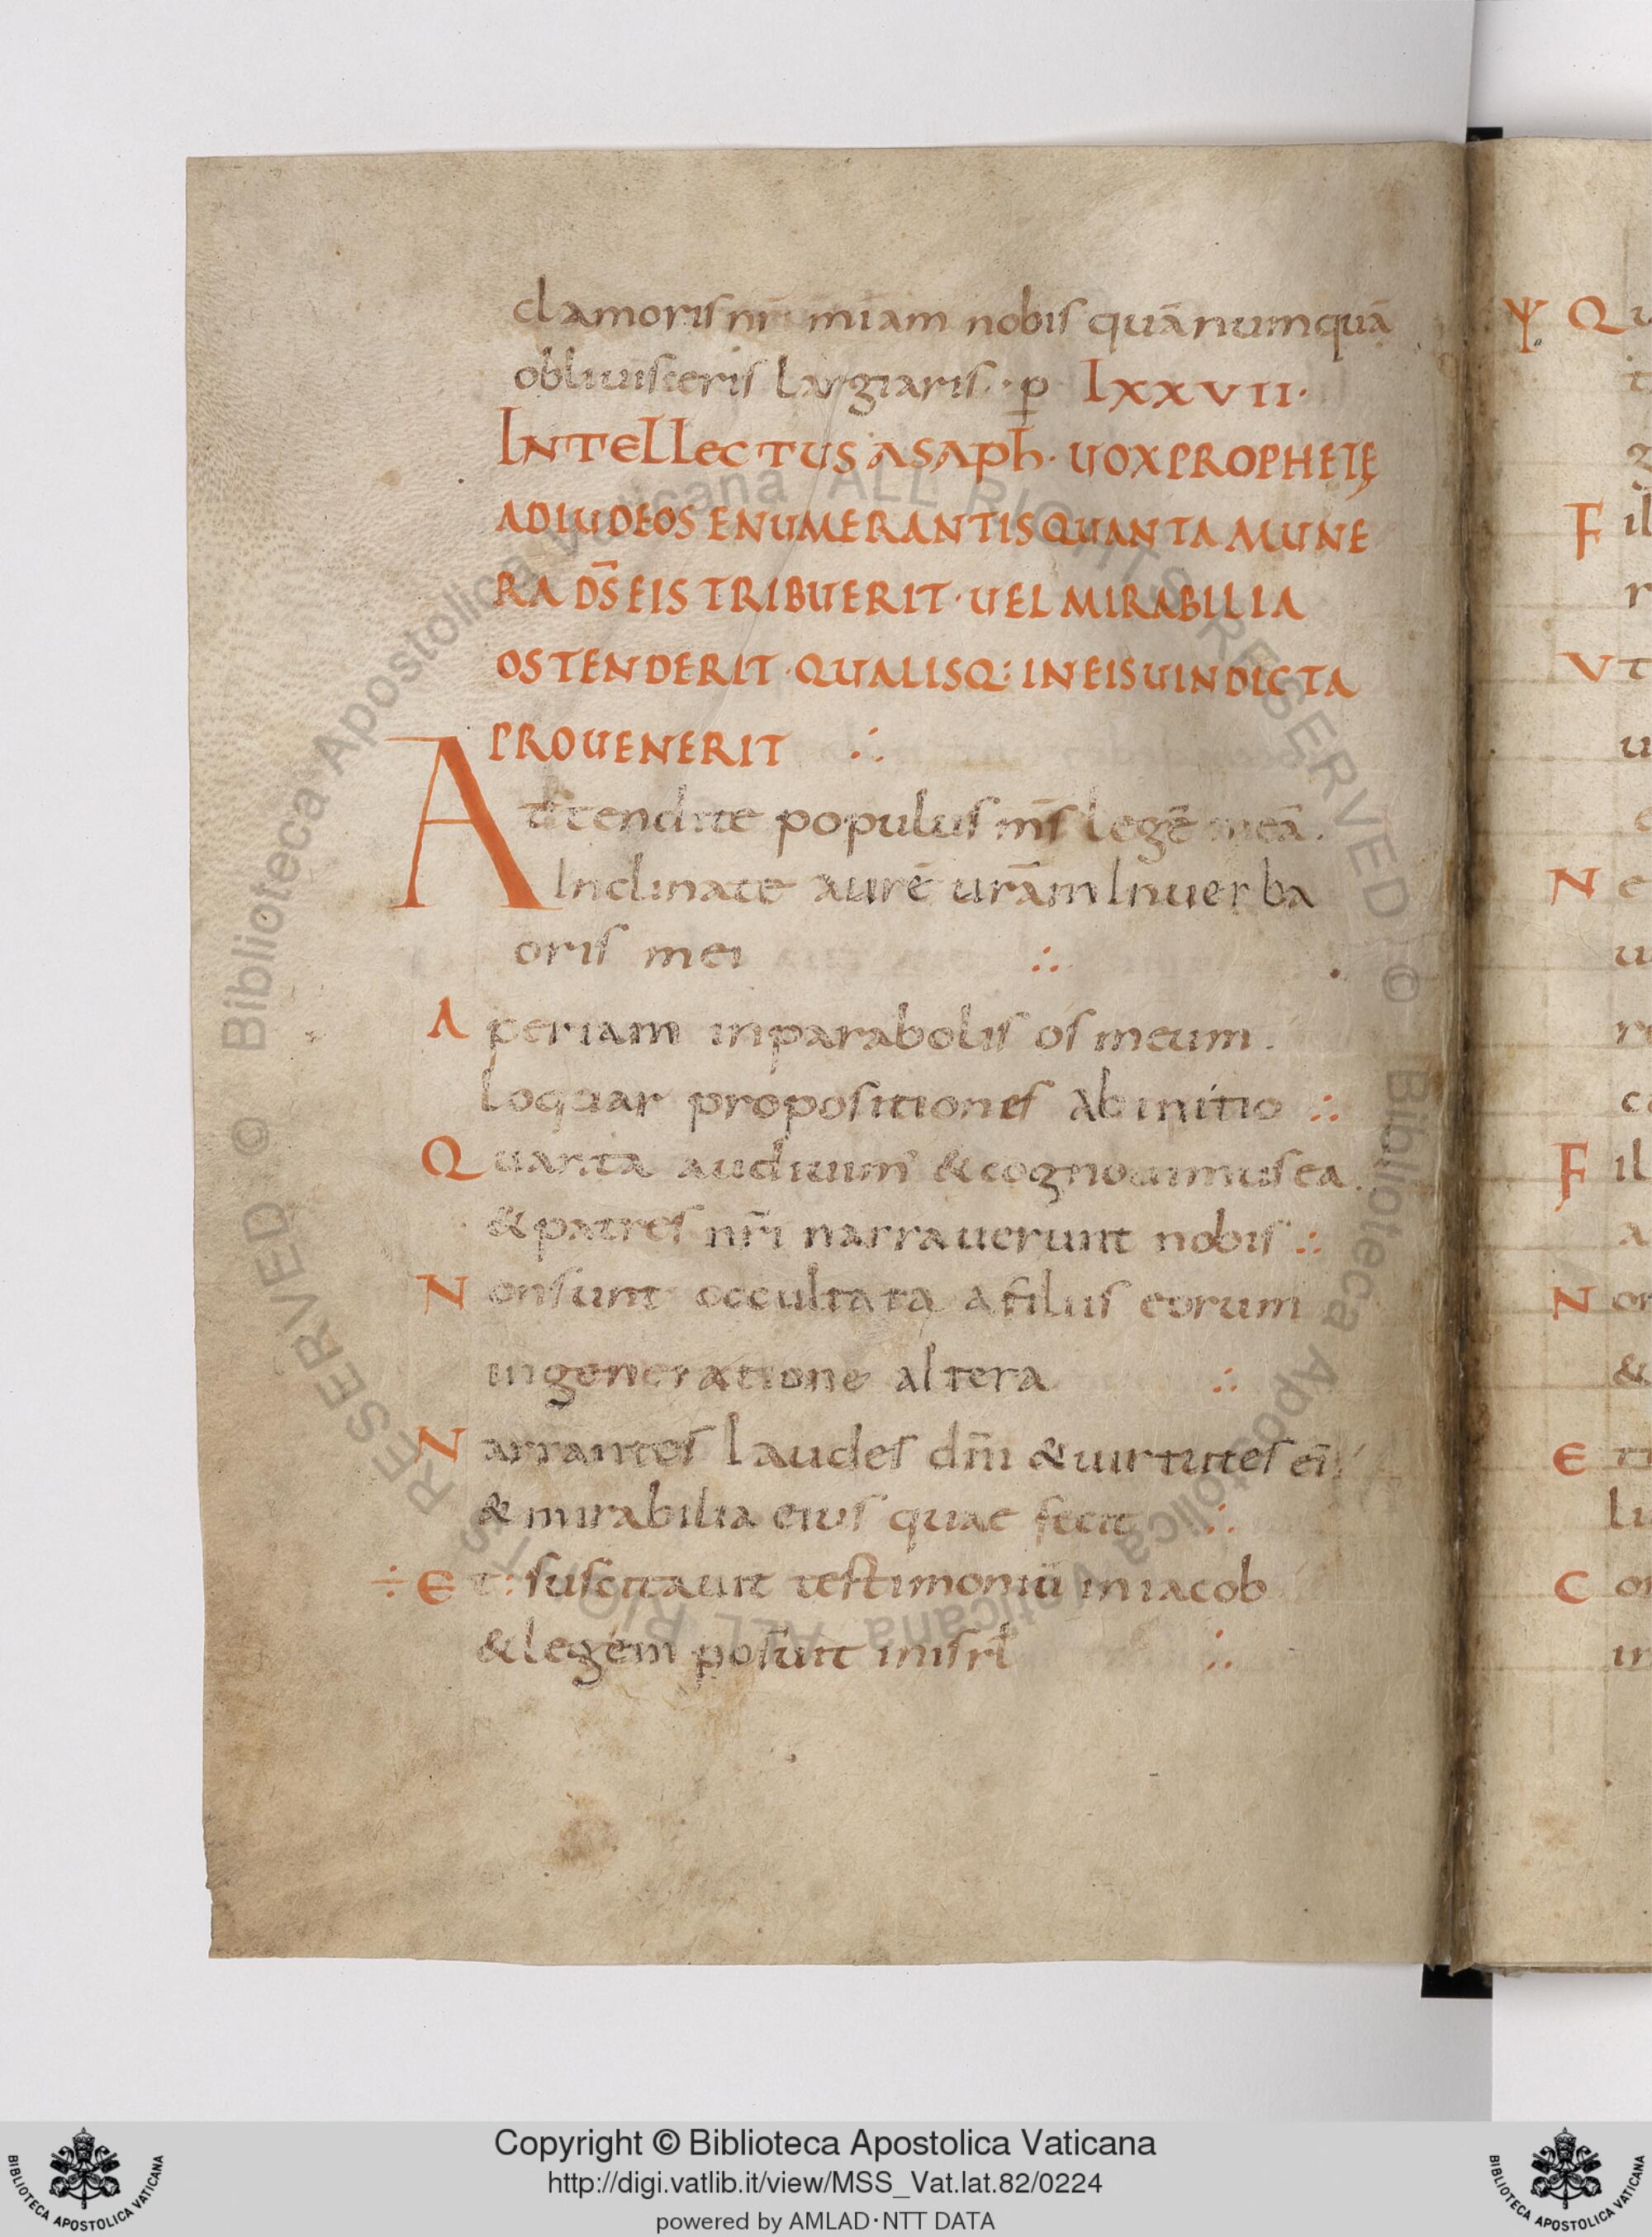 clamoris nr̄i miam nobis quā numquā
obliuisceris largiaris ·  p̄ LXXVII·
INTELLECTUS ASAPH· UOX PROPHETIĘ
AD IUDEOS ENUMERANTIS QUANTA MUNE
RA DS̄ EIS TRIBUERIT· UEL MIRABILIA
OSTENDERIT· QUALISQ: IN EIS UINDICTA
PROUENERIT ∴
Attendite populus m̄s legē meā.
Inclinate aurē ur̄am In uerba
oris mei ∴
Aperiam in parabolis os meum.
loquar propositiones ab initio ∴
Quanta audiuim' & cognouimus ea.
& patres nr̄i narrauerunt nobis ∴
Non sunt occultata a filiis eorum
in generatione altera ∴
Narrantes laudes dn̄i & uirtutes ei;
& mirabilia eius quae fecit ∴
÷ Et: suscitauit testimoniū in iacob
& legem posuit in isrl̄ ∴
Copyright © Biblioteca Apostolica Vaticana
http://digi.vatlib.it/view/MSS_Vat.lat.82/0224
powered by AMLAD·NTT DATA
BIBLIOTECA APOSTOLICA VATICANA
BIBLIOTECA APOSTOLICA VATICANA
© Biblioteca Apostolica Vaticana ALL RIGHTS RESERVED © Biblioteca Apostolica Vaticana ALL RIGHTS RESERVED